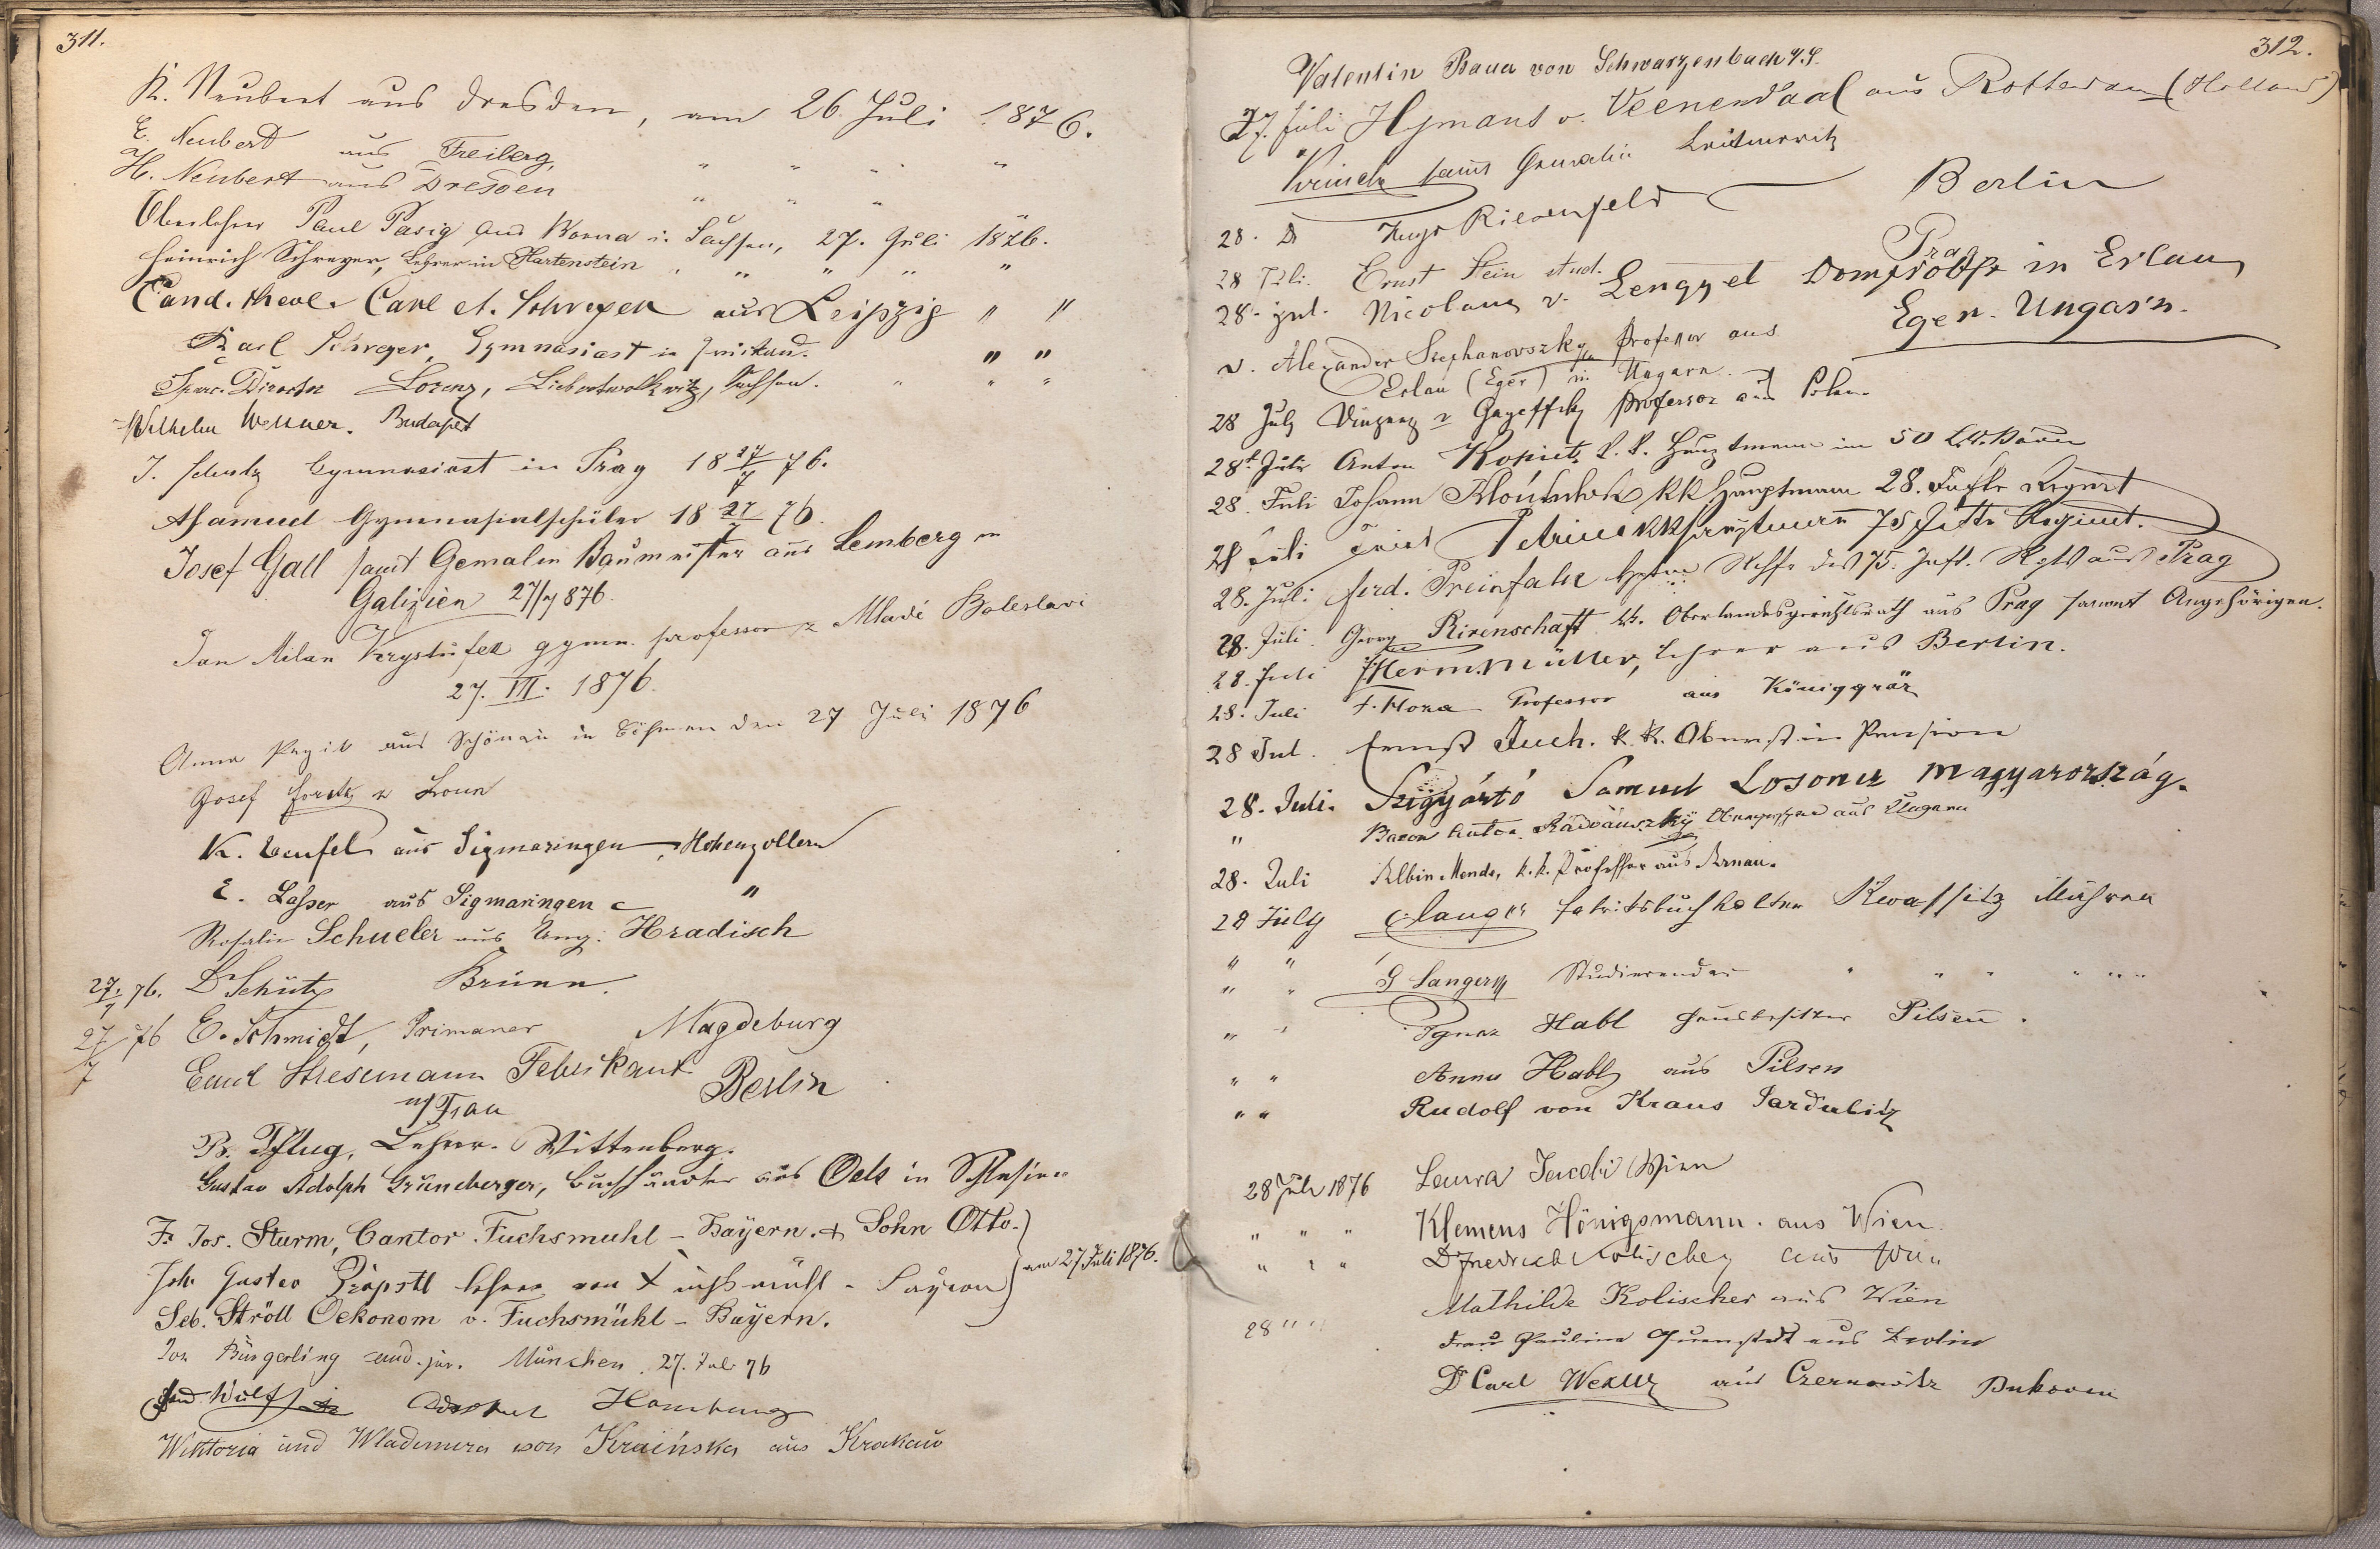 311.
K. Neubert aus Dresden, am 26. Juli 1876.
E. Neubert aus Freiberg, " " " "
H. Neubert aus Dresden " " "
Oberlehrer Paul Pasig aus Borna i. Sachsen, 27. Juli 1876.
Heinrich Schreyer, Lehrer in Hartenstein, " " " "
Cand. theol. Carl A. Schreyer aus Leipzig " "
Karl Schreyer, Gymnasiast in Zwickau. " "
Director Lorenz, Liebertwolkwitz, Sachsen. " " "
Wilhelm Wellner. Budapest
J. Schulz Gymnasiast in Prag 18 27/7 76.
Gymnasialschüler 18 27/7 76.
Josef Gall samt Gemalin Baumeister aus Lemberg in
Galizien 27/7 876.
Jan Milan Krystufek gymn. professor z Mladé Boleslavi
27. VII. 1876.
Anna aus Schönau in Böhmen den 27 Juli 1876
Josef z Loun
K. Teufel aus Sigmaringen, Hohenzollern
E. Lasser aus Sigmaringen "
Rosalie Schueler aus Ung. Hradisch
27/7 76. Dr Schütz Brünn.
27/7 76 E. Schmidt, Primaner Magdeburg
Emil Stresemann Fabrikant Berlin
u/ Frau
B. Pflug, Lehrer. Wittenberg.
Gustav Adolph Grüneberger, Buchhändler aus Oels in Schlesien
Fr. Jos. Sturm, Cantor Fuchsmühl - Bayern. + Sohn Otto.
Joh. Gustav Pröpstl Lehrer von Fuchsmühl - Bayern } am 27 Juli 1876.
Seb. Ströll Oekonom v. Fuchsmühl - Bayern.
Jos. Bürgerling cand. jur. München. 27. Juli 76
Hamburg
Wiktoria und Wladimira von Kraińska aus Krakau
312.
Valentin Bauer von Schwarzenbach a/S.
27. Juli Hymans v. Veenendaal aus Rotterdam (Holland)
samt Gemalin Leitmeritz
28. Dr Hugo Riesenfeld Berlin
28 Juli. Ernst Stein stud. Prag
28. jul. Nicolaus v. Lengyel Dompropst in Erlau
Eger. Ungarn.
v. Alexander Stephanovszky Professor aus
Erlau (Eger) in Ungarn.
28 July Vinzenz v Professor aus Polen
28t Juli Anton Kopietz k. k. Hauptmann im 50
28. Juli Johann kk Hauptmann 28. Inftr Regmt
28 Juli kk Hauptmann 75 Inftr Regimt.
28. Juli Ferd. Preinfalk Hptm des 75. Inft. Regts aus Prag
28. Juli Georg Rirenschaft kk. Oberlandesgerichtsrath aus Prag sammt Angehörigen.
28. Juli Herm. Müller, Lehrer aus Berlin.
28. Juli F. Hora Professor aus Königgräz
28 Jul. Ernst Juch. k. k. Oberst in Pension
28. Juli. Szigyártó Samuel Losoncz Magyarország.
" Baron Anton Radvánszky Obergespan aus Ungarn
28. Juli Albin Mende, k. k. Professor aus Arnau.
28 July C. Langer Fabriksbuchhalter Kwassitz Mähren
" " G Langer Studierender " " " " " "
" " Ignaz Habl Hausbesitzer Pilsen.
" " Anna Habl aus Pilsen
" " Rudolf von Kraus Pardubitz
28 July 1876 Laura Jacobi Wien
" " " Klemens Hönigsmann. aus Wien.
" " " Dr Friedrich Kolischer aus Wien
Mathilde Kolischer aus Wien
28 " " Frau Pauline Quenstedt aus Berlin
Dr Carl Wexler aus Czernowitz Bukowina